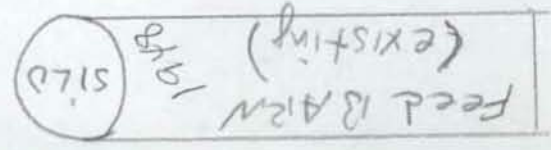 Feed BARN
(existing)
SILO